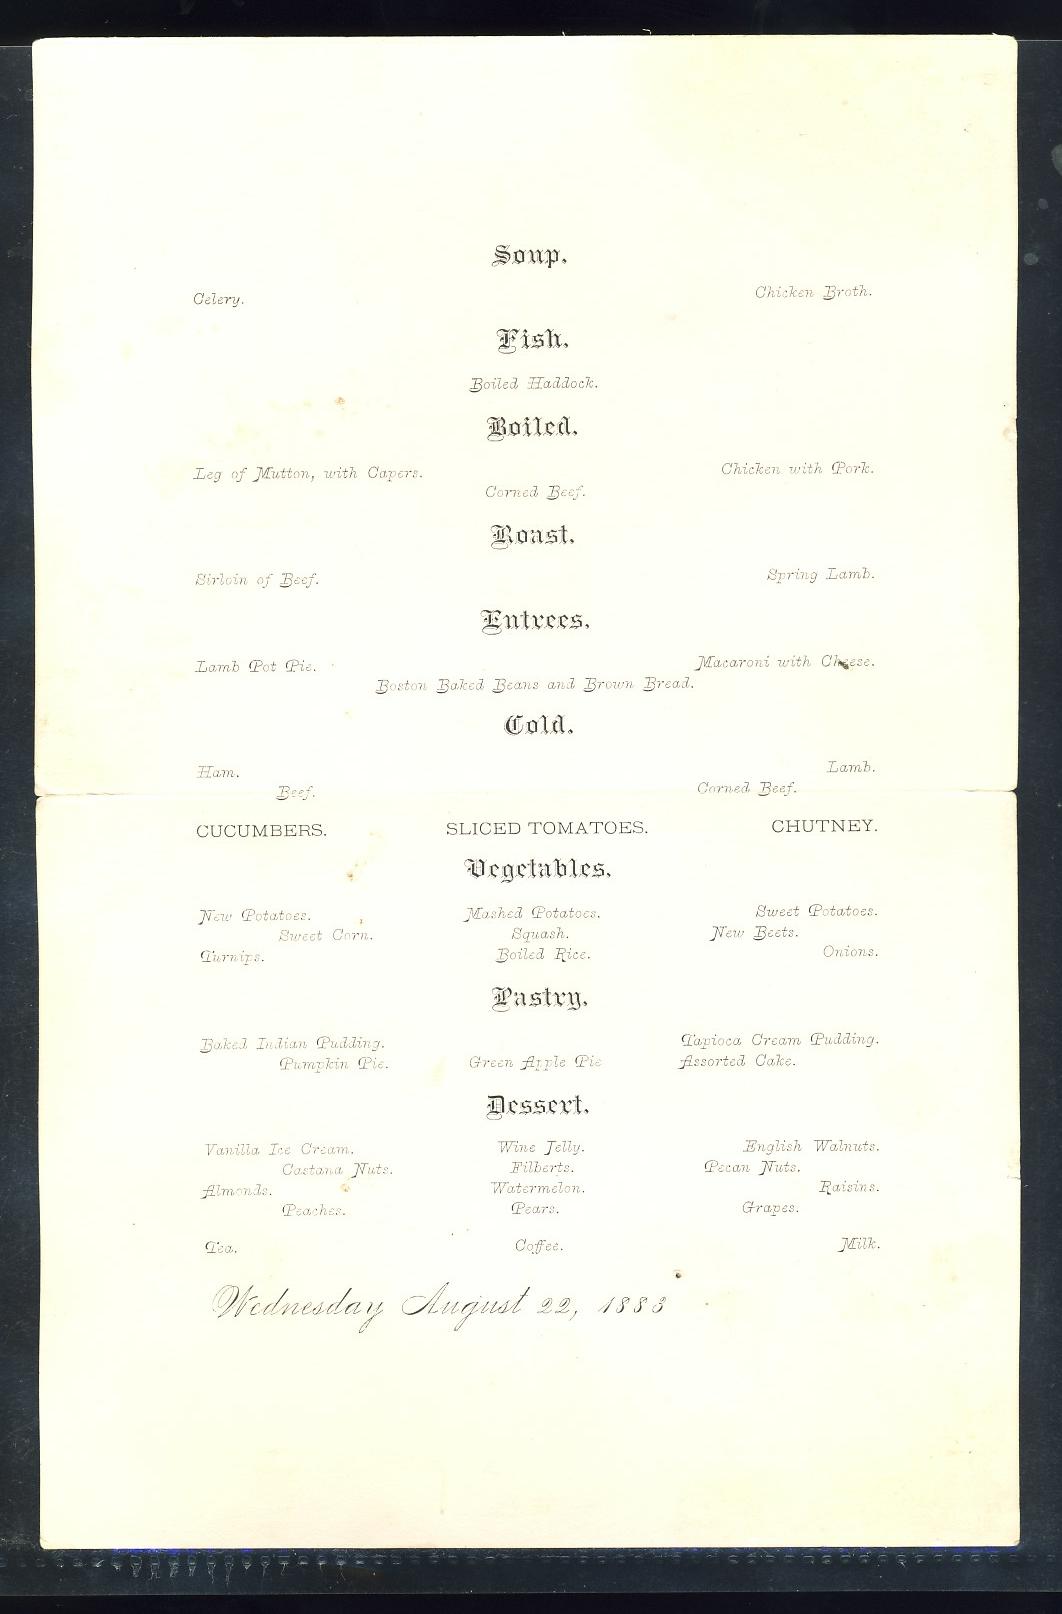 Soup.
Celery. Chicken Broth.
Fish.
Boiled Haddock.
Boiled.
Leg of Mutton, with Capers. Chicken with Pork.
Corned Beef.
Roast.
Sirloin of Beef. Spring Lamb.
Entrees.
Lamb Pot Pie. Macaroni with Cheese.
Boston Baked Beans and Brown Bread.
Cold.
Ham. Lamb.
Beef. Corned Beef.
CUCUMBERS. SLICED TOMATOES. CHUTNEY.
Vegetables.
New Potatoes. Mashed Potatoes. Sweet Potatoes.
Sweet Corn. Squash. New Beets.
Turnips. Boiled Rice. Onions.
Pastry.
Baked Indian Pudding. Tapioca Cream Pudding.
Pumpkin Pie. Green Apple Pie Assorted Cake.
Dessert.
Vanilla Ice Cream. Wine Jelly. English Walnuts.
Castana Nuts. Filberts. Pecan Nuts.
Almonds. Watermelon. Raisins.
Peaches. Pears. Grapes.
Tea. Coffee. Milk.
Wednesday August 22, 1883